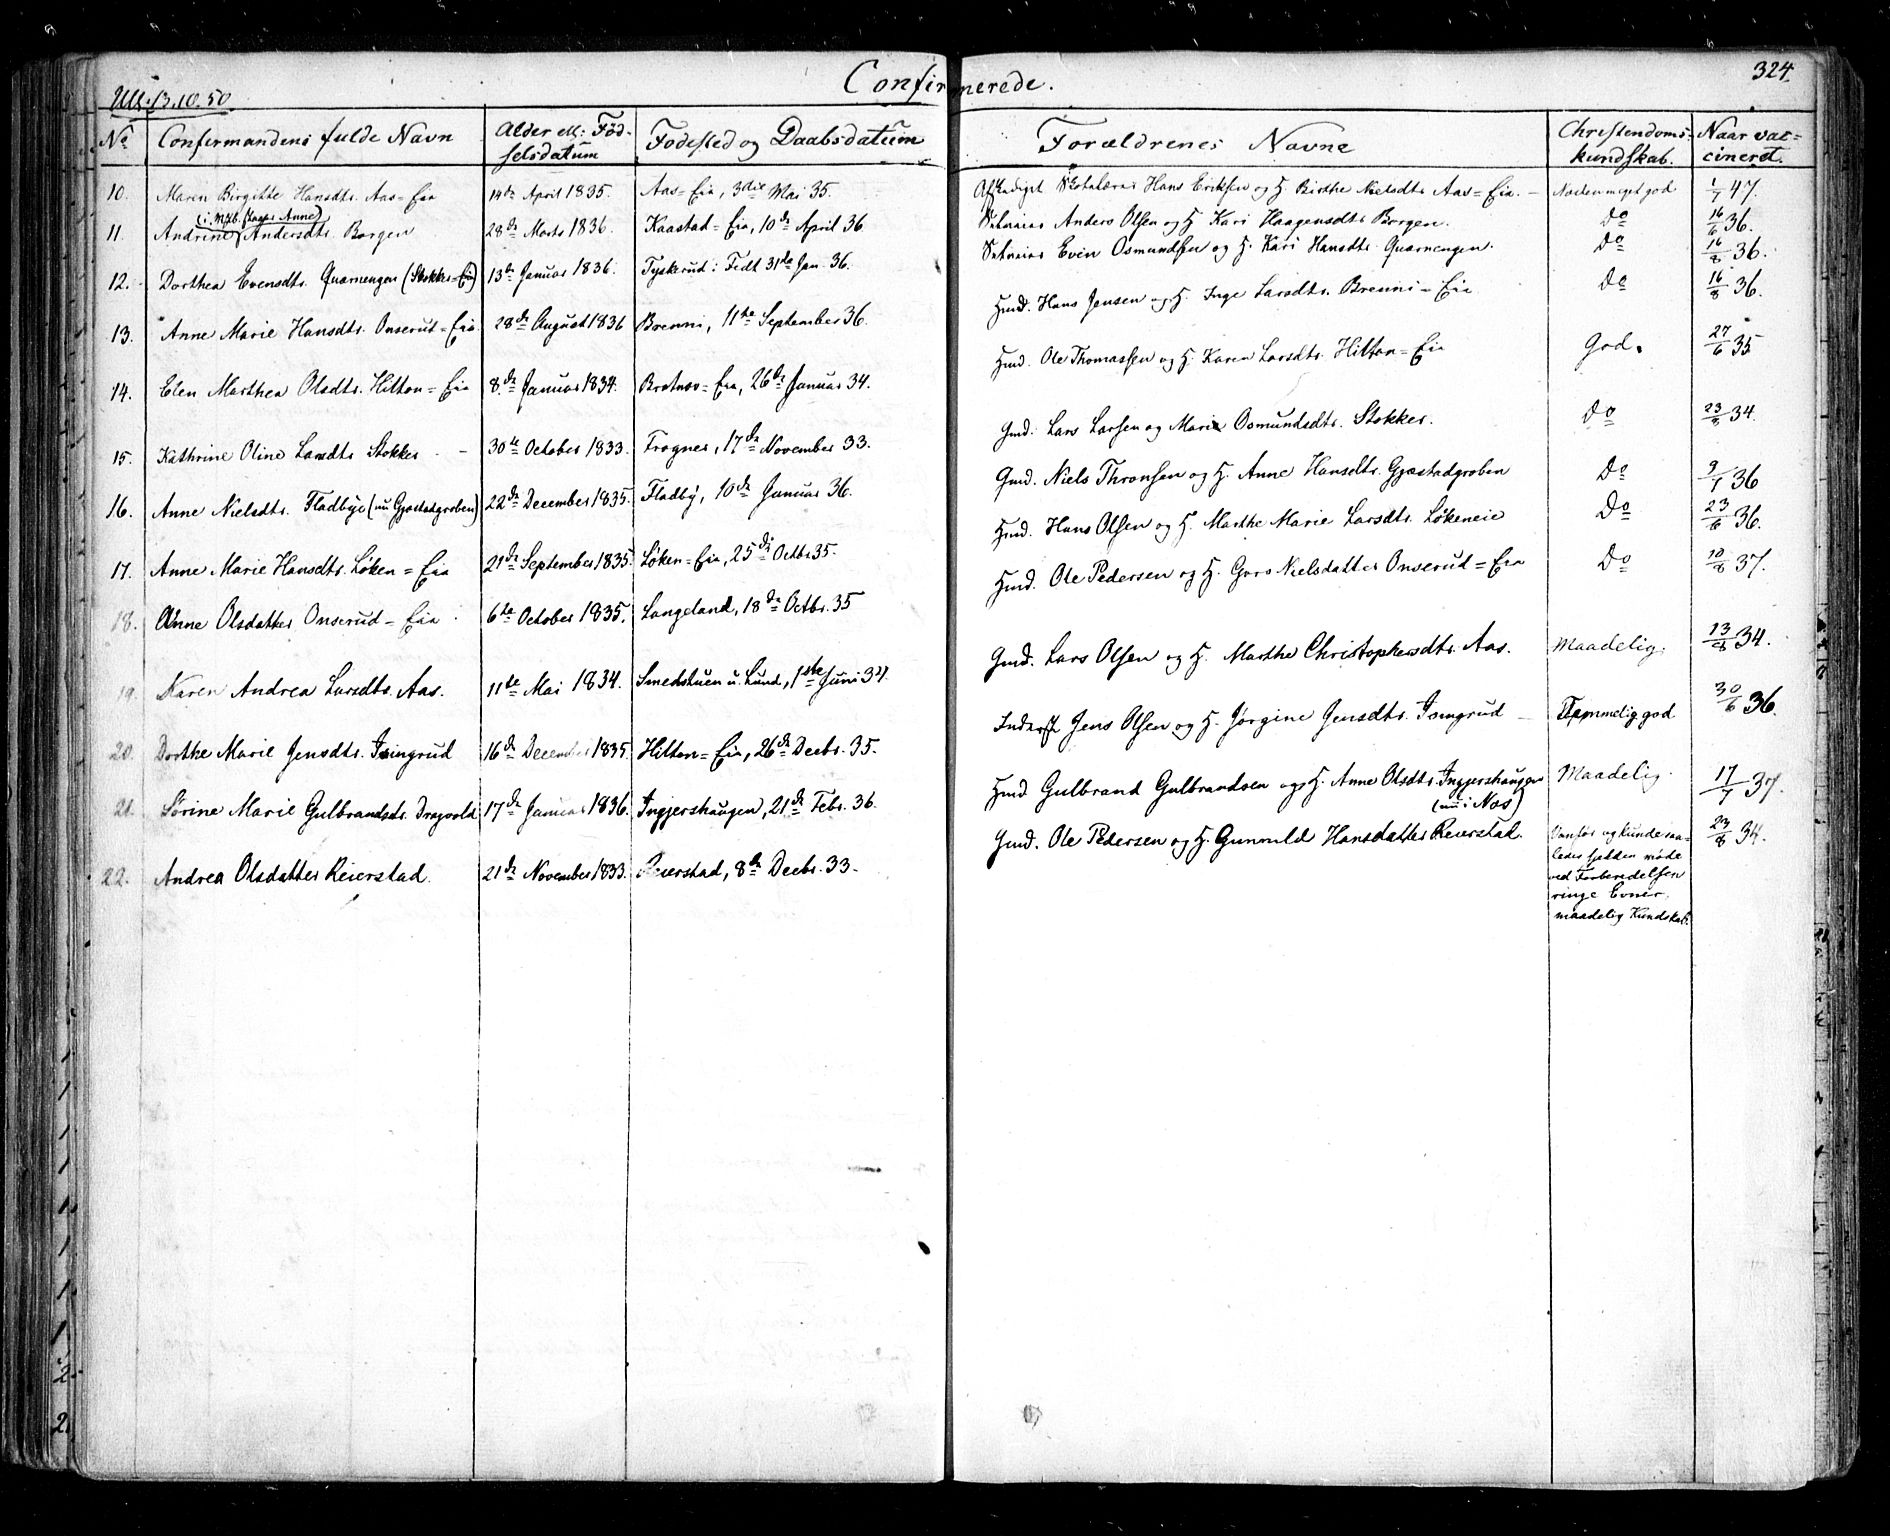 Confirmerede.
324.
Ull. 13.10.50
No Confirmandens fulde Navn Alder ell: Fød- Fødested og Daabsdatum Forældrenes Navne Christendoms- Naar vac-
selsdatum kundskab. cineret.
10. Maren Birgitte Hansdtr. Aas=Eia 14de April 1835. Aas=Eia, 3die Mai 35. Hans Eriksen og H. Birthe Nielsdtr Aas=Eia. Noden meget god 1/7 47.
(i Mtb. Anne)
11. Andrine Andersdtr. Borgen 28de Marts 1836. Kaastad=Eia, 10de April 36 Anders Olsen og H. Kari Haagensdtr Borgen. Do 16/6 36.
12. Dorthea Evensdtr. Quarnengen (Stokker=Eia) 13de Januar 1836. Tyskerud i Fedt 31te Jan. 36. Even Osmundsen og H. Kari Hansdtr. Quarnengen. Do 16/8 36.
13. Anne Marie Hansdtr. Onserud=Eia 28de August 1836 Brenni, 11te September 36. Hmd. Hans Jensen og H. Inge Larsdtr. Brenni=Eia Do 16/8 36.
14. Elen Marthea Olsdtr. Hilton=Eia 8de Januar 1834. Bratnov=Eia, 26de Januar 34. Hmd. Ole Thomassen og H. Karen Larsdtr. Hilton=Eia God. 27/6 35
15. Kathrine Oline Larsdtr Stokker 30te October 1833. Frogner, 17de November 33. Gmd. Lars Larsen og Marie Osmundsdtr. Stokker. Do 23/8 34.
16. Anne Nielsdtr. Fladbye (nu Gjøstadgroben) 22de December 1835. Fladby, 10de Januar 36. Gmd. Niels Thronsen og H. Anne Hansdtr. Gjøstadgroben Do 9/7 36
17. Anne Marie Hansdtr. Løken=Eia 21de September 1835. Løken=Eia, 25de Octbr 35. Hmd. Hans Olsen og H. Marthe Marie Larsdtr. Løkeneie Do 23/6 36.
18. Anne Olsdatter Onserud=Eia 6te October 1835. Langeland, 18de Octbr. 35 Hmd. Ole Pedersen og H. Goro Nielsdatter Onserud=Eia Do 10/8 37.
19. Karen Andrea Larsdtr. Aas. 11te Mai 1834. Smedstuen u. Lund, 1ste Juni 34 Gmd. Lars Olsen og H. Marthe Christophersdtr. Aas. Maadelig. 13/8 34.
20. Dorthe Marie Jensdtr. Isingrud 16de December 1835. Hilton=Eia, 26de Decbr. 35. Inderst Jens Olsen og H. Jørgine Jensdtr. Isingrud Temmelig god 30/6 36.
21. Sørine Marie Gulbrandsdr. Dragvold 17de Januar 1836. Ingjershaugen, 21de Febr. 36. Hmd Gulbrand Gulbrandsen og H. Anne Olsdtr. Ingjershaugen Maadelig. 17/7 37.
(nu i Næs)
22. Andrea Olsdatter Reierstad. 21de November 1833. Reierstad, 8de Decbr. 33. Gmd. Ole Pedersen og H. Gunnuld Hansdatter Reierstad. Vanfør og kunde saa- 23/8 34.
ledes sjelden møde
ved Forberedelsen
ringe Evner.
maadelig Kundskab.